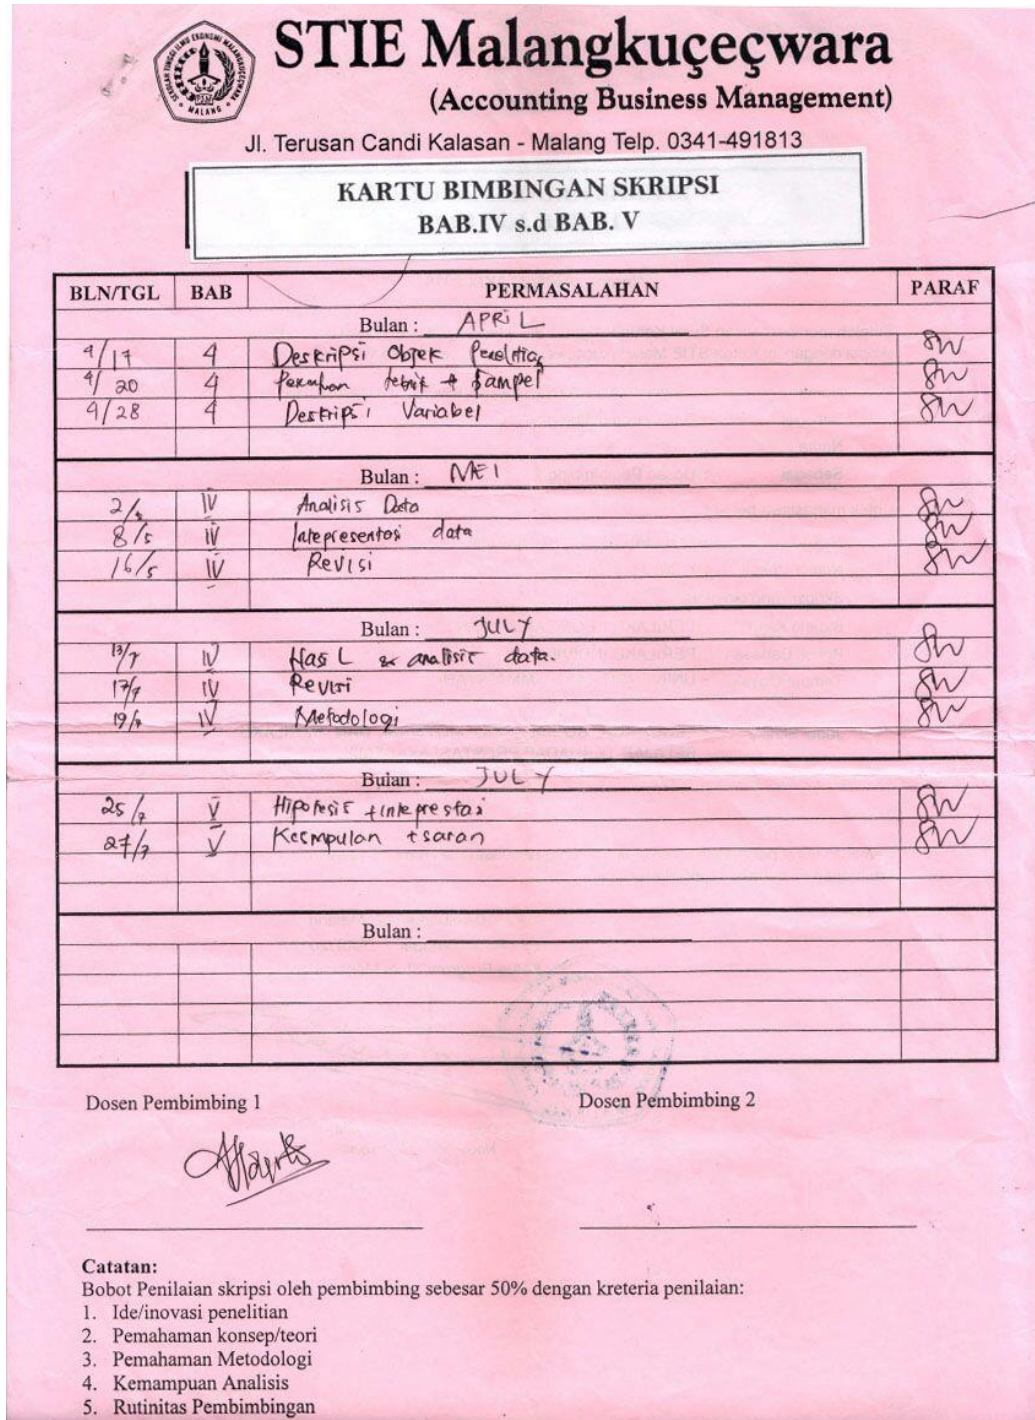 SEKOLAH TINGGI ILMU EKONOMI MALANGKUCECWARA
MALANG
STIE Malangkuçeçwara
(Accounting Business Management)
Jl. Terusan Candi Kalasan - Malang Telp. 0341-491813
KARTU BIMBINGAN SKRIPSI
BAB.IV s.d BAB. V
BLN/TGL BAB PERMASALAHAN PARAF
Bulan : APRIL
4/17 4 Deskripsi Objek
4/20 4 + Sampel
4/28 4 Deskripsi Variabel
Bulan : MEI
2/5 IV Analisis Data
8/5 IV Intepresentasi data
16/5 IV Revisi
Bulan : JULY
13/7 IV Hasil & analisis data.
17/7 IV Revisi
19/7 IV Metodologi
Bulan : JULY
25/7 V Hipotesis + inteprestasi
27/7 V Kesmpulan + saran
Bulan :
Dosen Pembimbing 1 Dosen Pembimbing 2
Catatan:
Bobot Penilaian skripsi oleh pembimbing sebesar 50% dengan kreteria penilaian:
1. Ide/inovasi penelitian
2. Pemahaman konsep/teori
3. Pemahaman Metodologi
4. Kemampuan Analisis
5. Rutinitas Pembimbingan